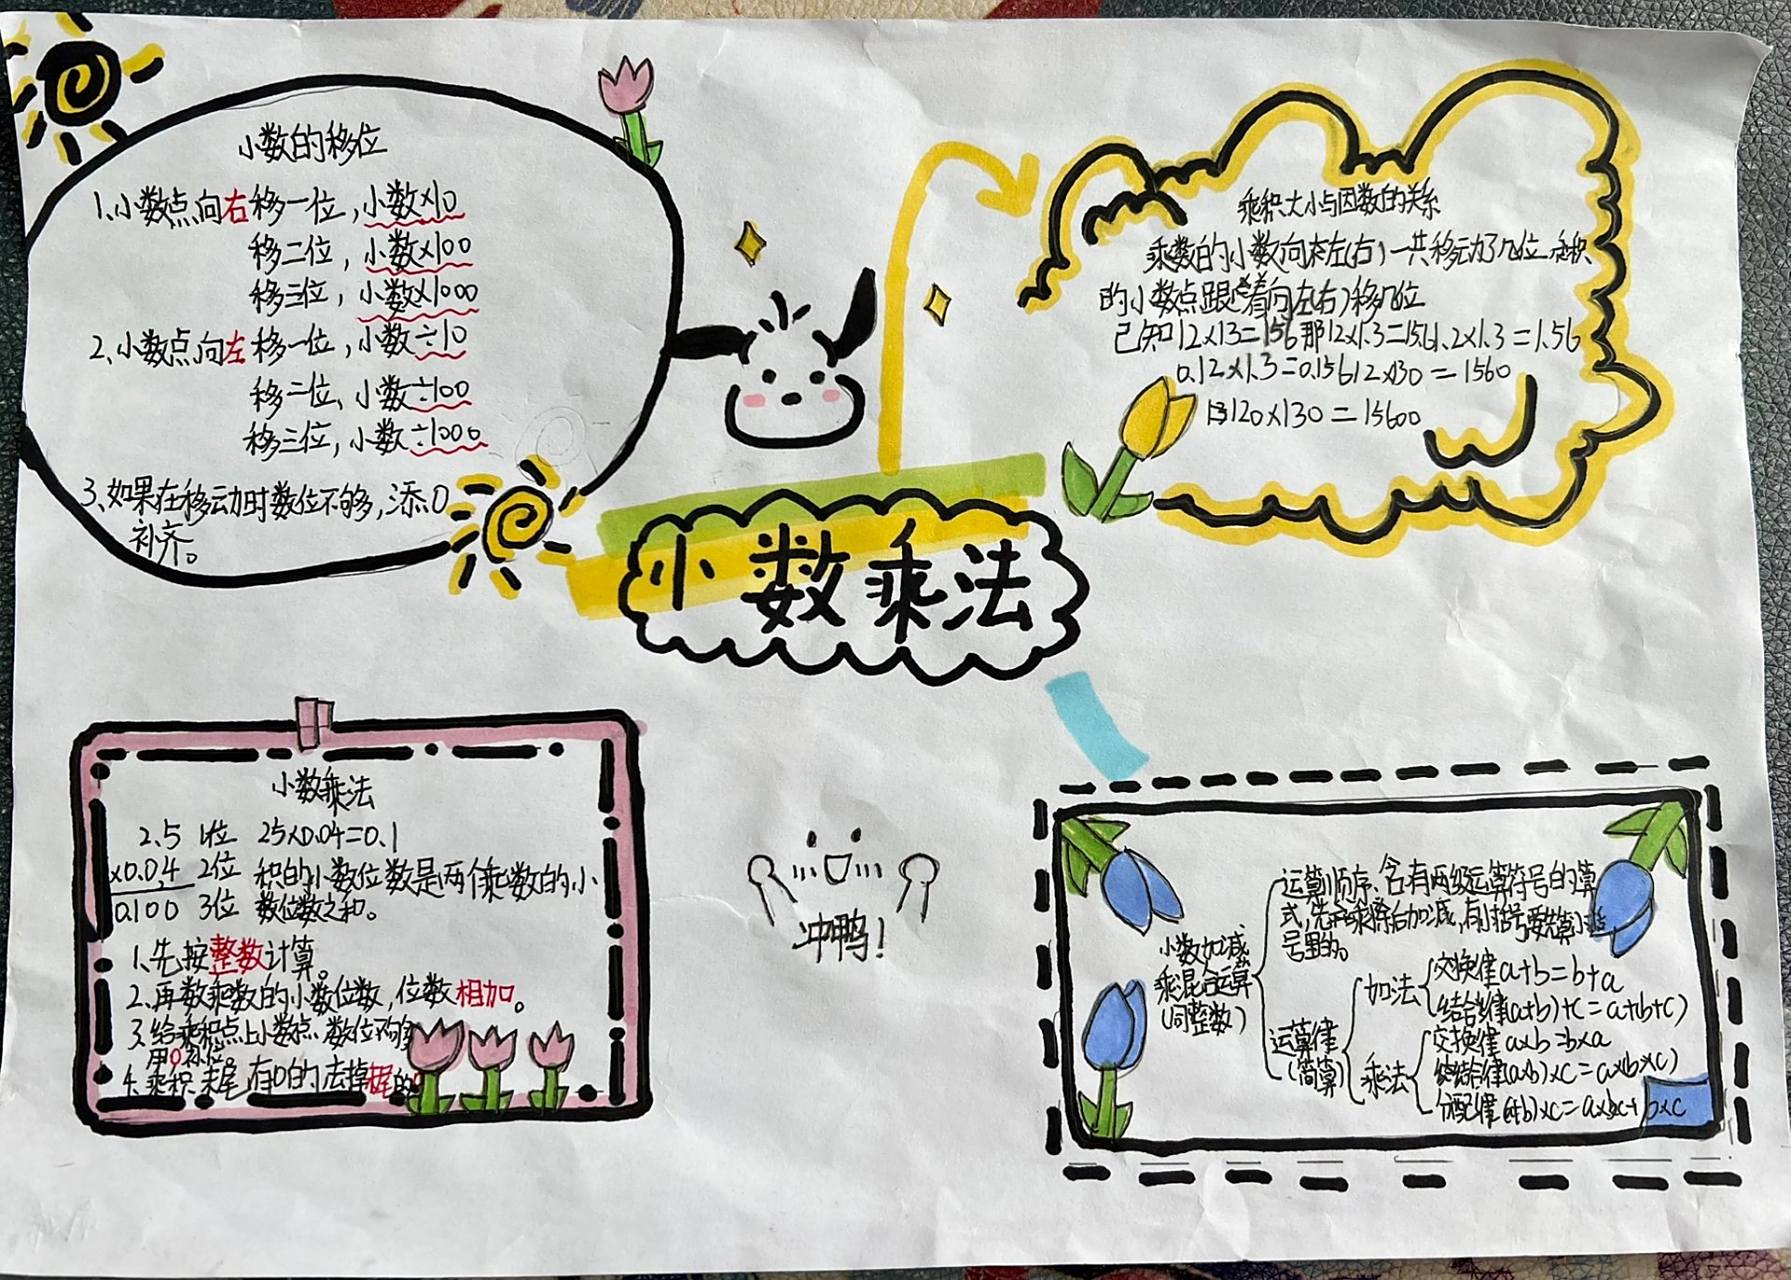 小数的移位
1、小数点向右移一位，小数×10
移二位，小数×100
移三位，小数×1000
2、小数点向左移一位，小数÷10
移二位，小数÷100
移三位，小数÷1000
3、如果在移动时数位不够，添0
补齐。
乘积大小与因数的关系
乘数的小数向左(右)一共移动了几位
的小数点跟着向左(右)移几位
已知12×13=156那12×1.3=15.6 1.2×1.3=1.56
0.12×1.3=0.156 12×130=1560
120×130=15600
小数乘法
小数乘法
2.5 1位 25×0.04=0.1
×0.04 2位 积的小数位数是两个乘数的小
0.100 3位 数位数之和。
1、先按整数计算。
2、再数乘数的小数位数，位数相加。
3、给乘积点上小数点，数位不够
用0补位。
4、乘积末尾有0的去掉
冲鸭！
小数加减
乘混合运算
(同整数)
运算顺序：含有两级运算符号的算
式，先乘除后加减，有小括号要先算小括
号里的。
运算律
(简算)
加法
交换律a+b=b+a
结合律(a+b)+c=a+(b+c)
乘法
交换律a×b=b×a
结合律(a×b)×c=a×(b×c)
分配律(a+b)×c=a×c+b×c